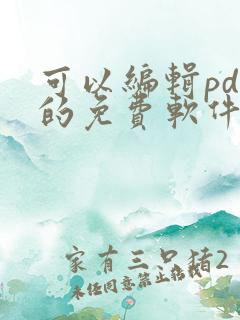 可以編輯pd
的免費軟件
家有三只豬2
未经同意禁止转载